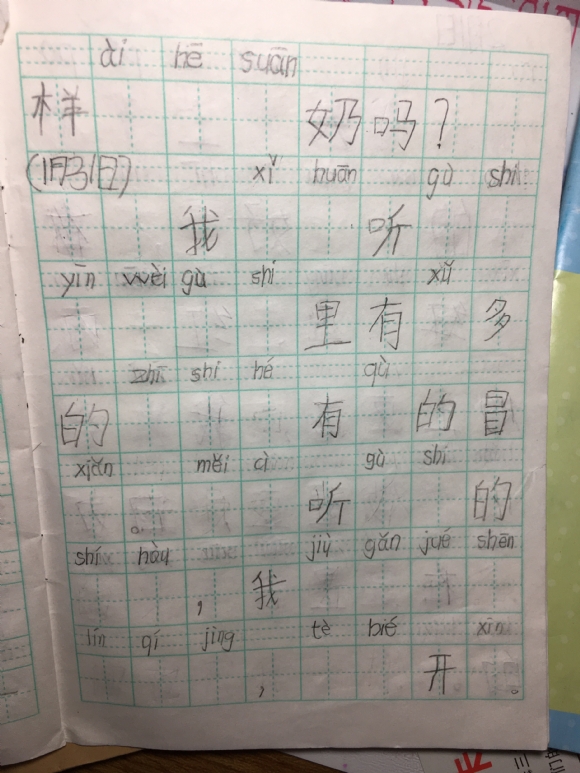 ài hē suān
样 奶吗？
xǐ huān gù shi
我 听
yīn wèi gù shi xǔ
里有 多
zhī shi hé qù
的 有 的冒
xiǎn měi cì gù shi
。 听 的
shí hòu jiù gǎn jué shēn
， 我
lín qí jìng tè bié xīn
， 开 。